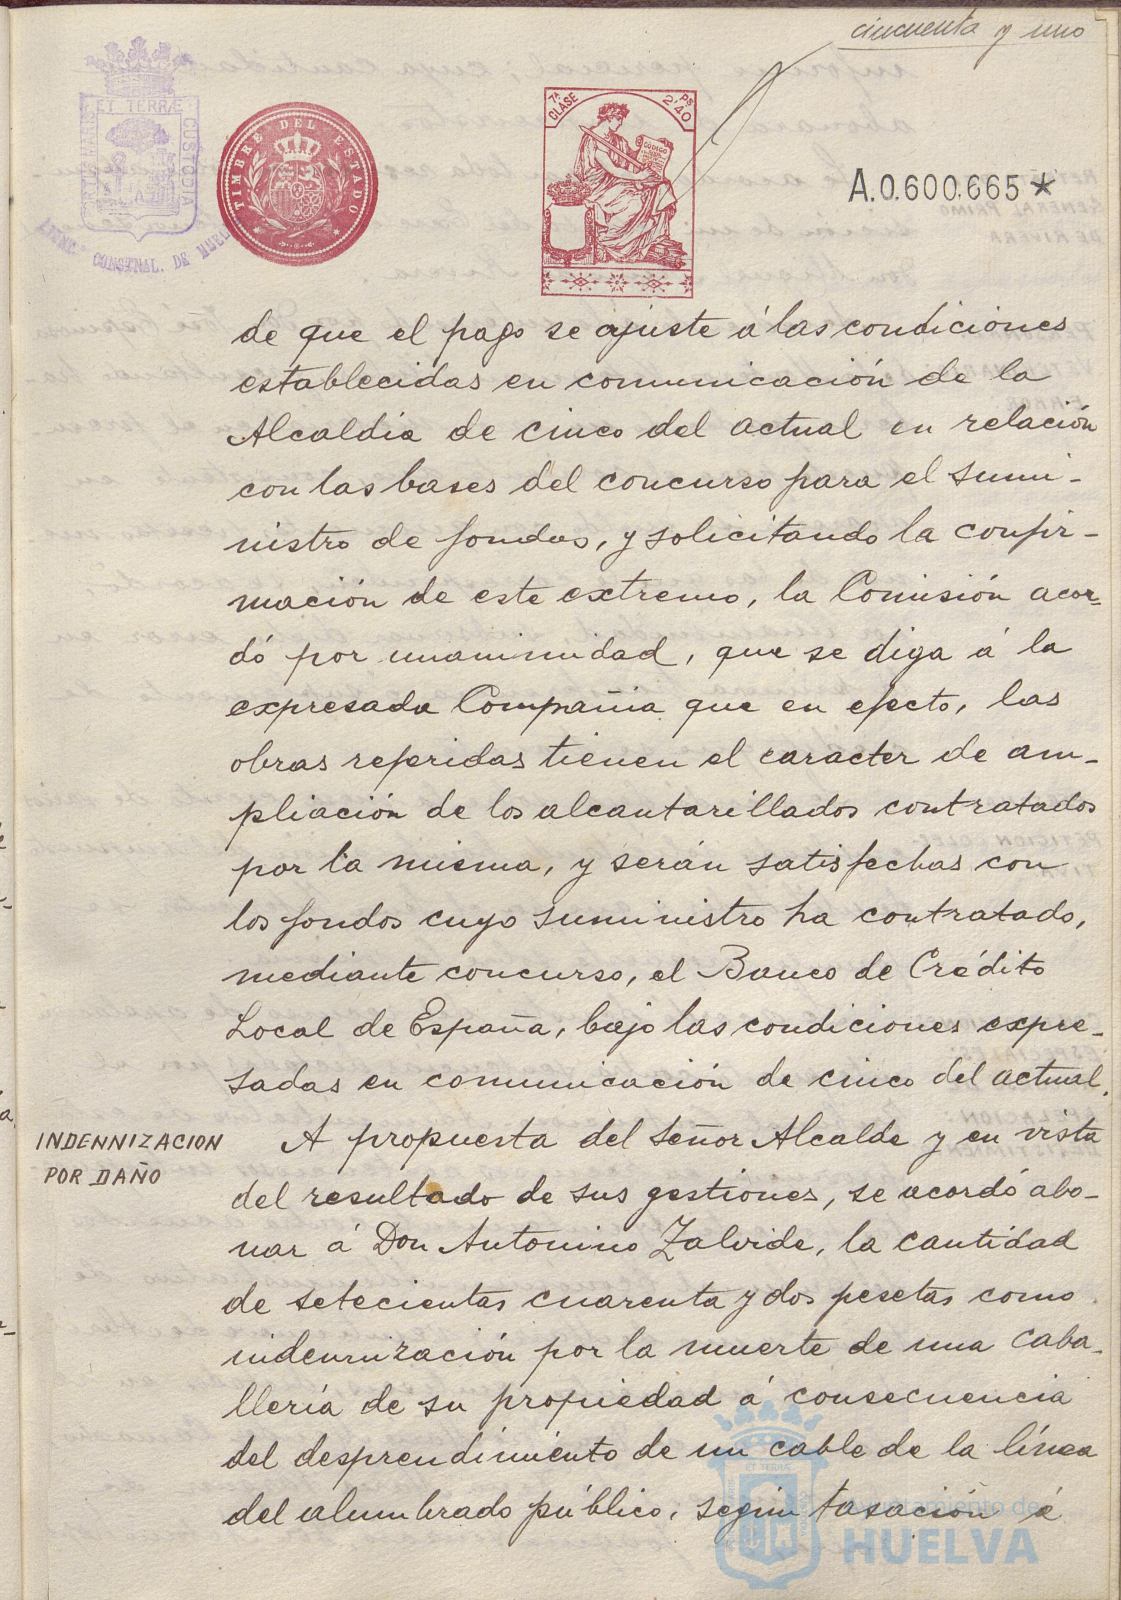 cincuenta y uno
ET TERRÆ
CUSTODIA
CONSENAL. DE HUEL
TIMBRE DEL ESTADO
7ª CLASE
PS 2'40
CODIGO
A.0.600.665*
de que el pago se ajuste á las condiciones
establecidas en comunicación de la
Alcaldia de cinco del actual en relación
con las bases del concurso para el sumi-
nistro de fondos, y solicitando la confir-
mación de este extremo, la Comisión acor-
dó por unanimidad, que se diga á la
expresada Compañia que en efecto, las
obras referidas tienen el caracter de am-
pliación de los alcantarillados contratados
por la misma, y serán satisfechas con
los fondos cuyo suministro ha contratado,
mediante concurso, el Banco de Crédito
Local de España, bajo las condiciones expre-
sadas en comunicación de cinco del actual.
INDENNIZACION
POR DAÑO
A propuesta del señor Alcalde y en vista
del resultado de sus gestiones, se acordó abo-
nar á Don Antonino Zalvide, la cantidad
de setecientas cuarenta y dos pesetas como
indemnización por la muerte de una caba-
llería de su propiedad á consecuencia
del desprendimiento de un cable de la línea
del alumbrado público, según tasación é
Ayuntamiento de
HUELVA